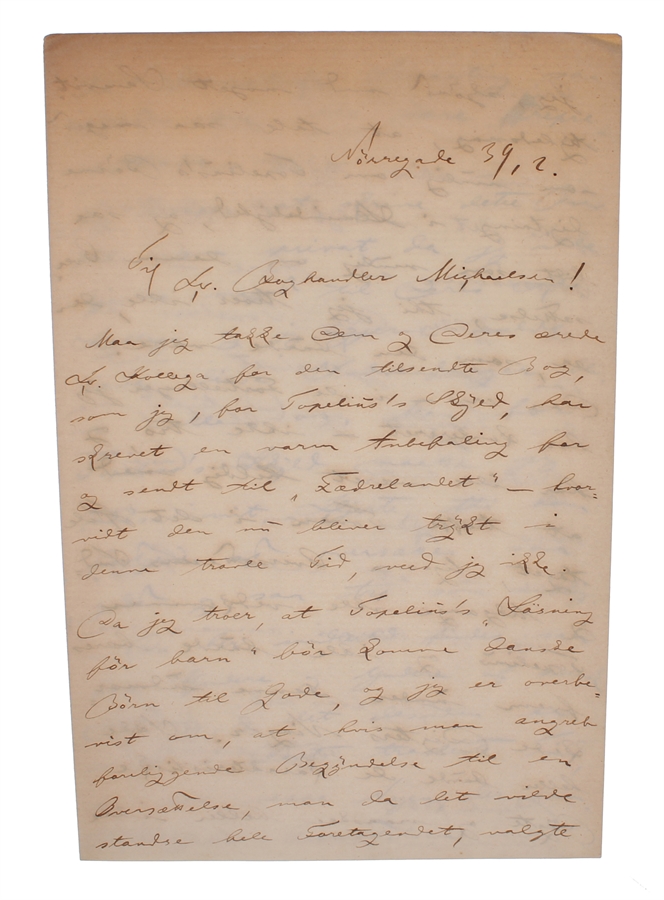 Nörregade 39, 2.
Til Hr. Boghandler Michaelsen!
Maa jeg takke Dem og Deres ærede
Hr. Kollega for den tilsendte Bog,
som jeg, for Topelius's Skyld, har
skrevet en varm Anbefaling for
og sendt til „Fædrelandet" — hvor=
vidt den nu bliver trykt i
denne travle Tid, veed jeg ikke.
Da jeg troer, at Topelius's „Läsning
för barn" bör komme danske
Börn til Gode, og jeg er overbe=
vist om, at hvis man angreb
foreliggende Begyndelse til en
Oversættelse, man da let vilde
standse hele Foretagendet, valgte